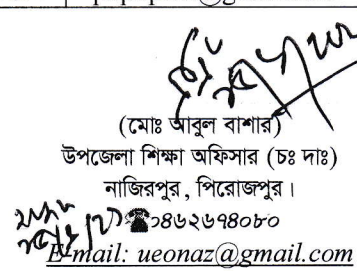 (মোঃ আবুল বাশার)
উপজেলা শিক্ষা অফিসার (চঃ দাঃ)
নাজিরপুর, পিরোজপুর।
☎০৪৬২৬৭৪০৮০
E-mail: ueonaz@gmail.com